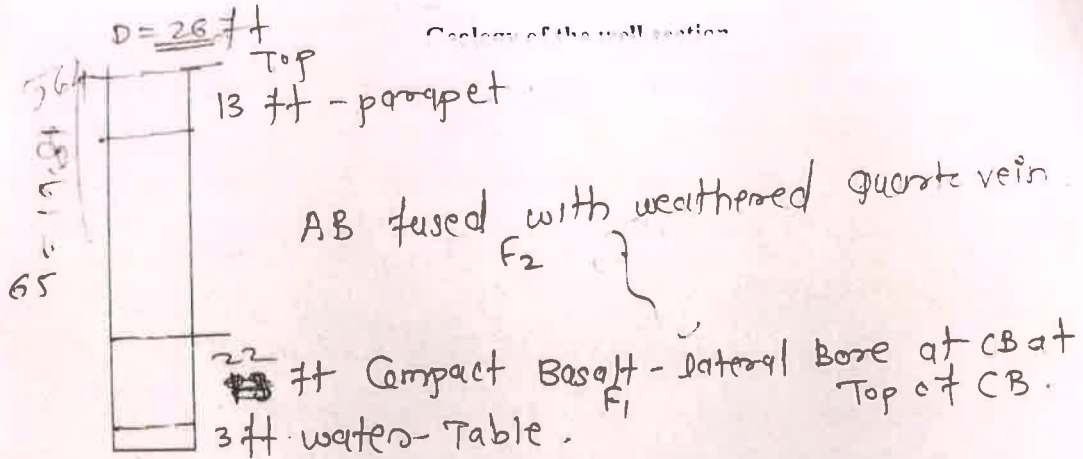 D = 26 ft
Geology of the well section
Top
13 ft - parapet.
AB fused with weathered quartz vein
F2
22 ft Compact Basalt - lateral Bore at CB at
F1
Top of CB.
3 ft water-Table.
65